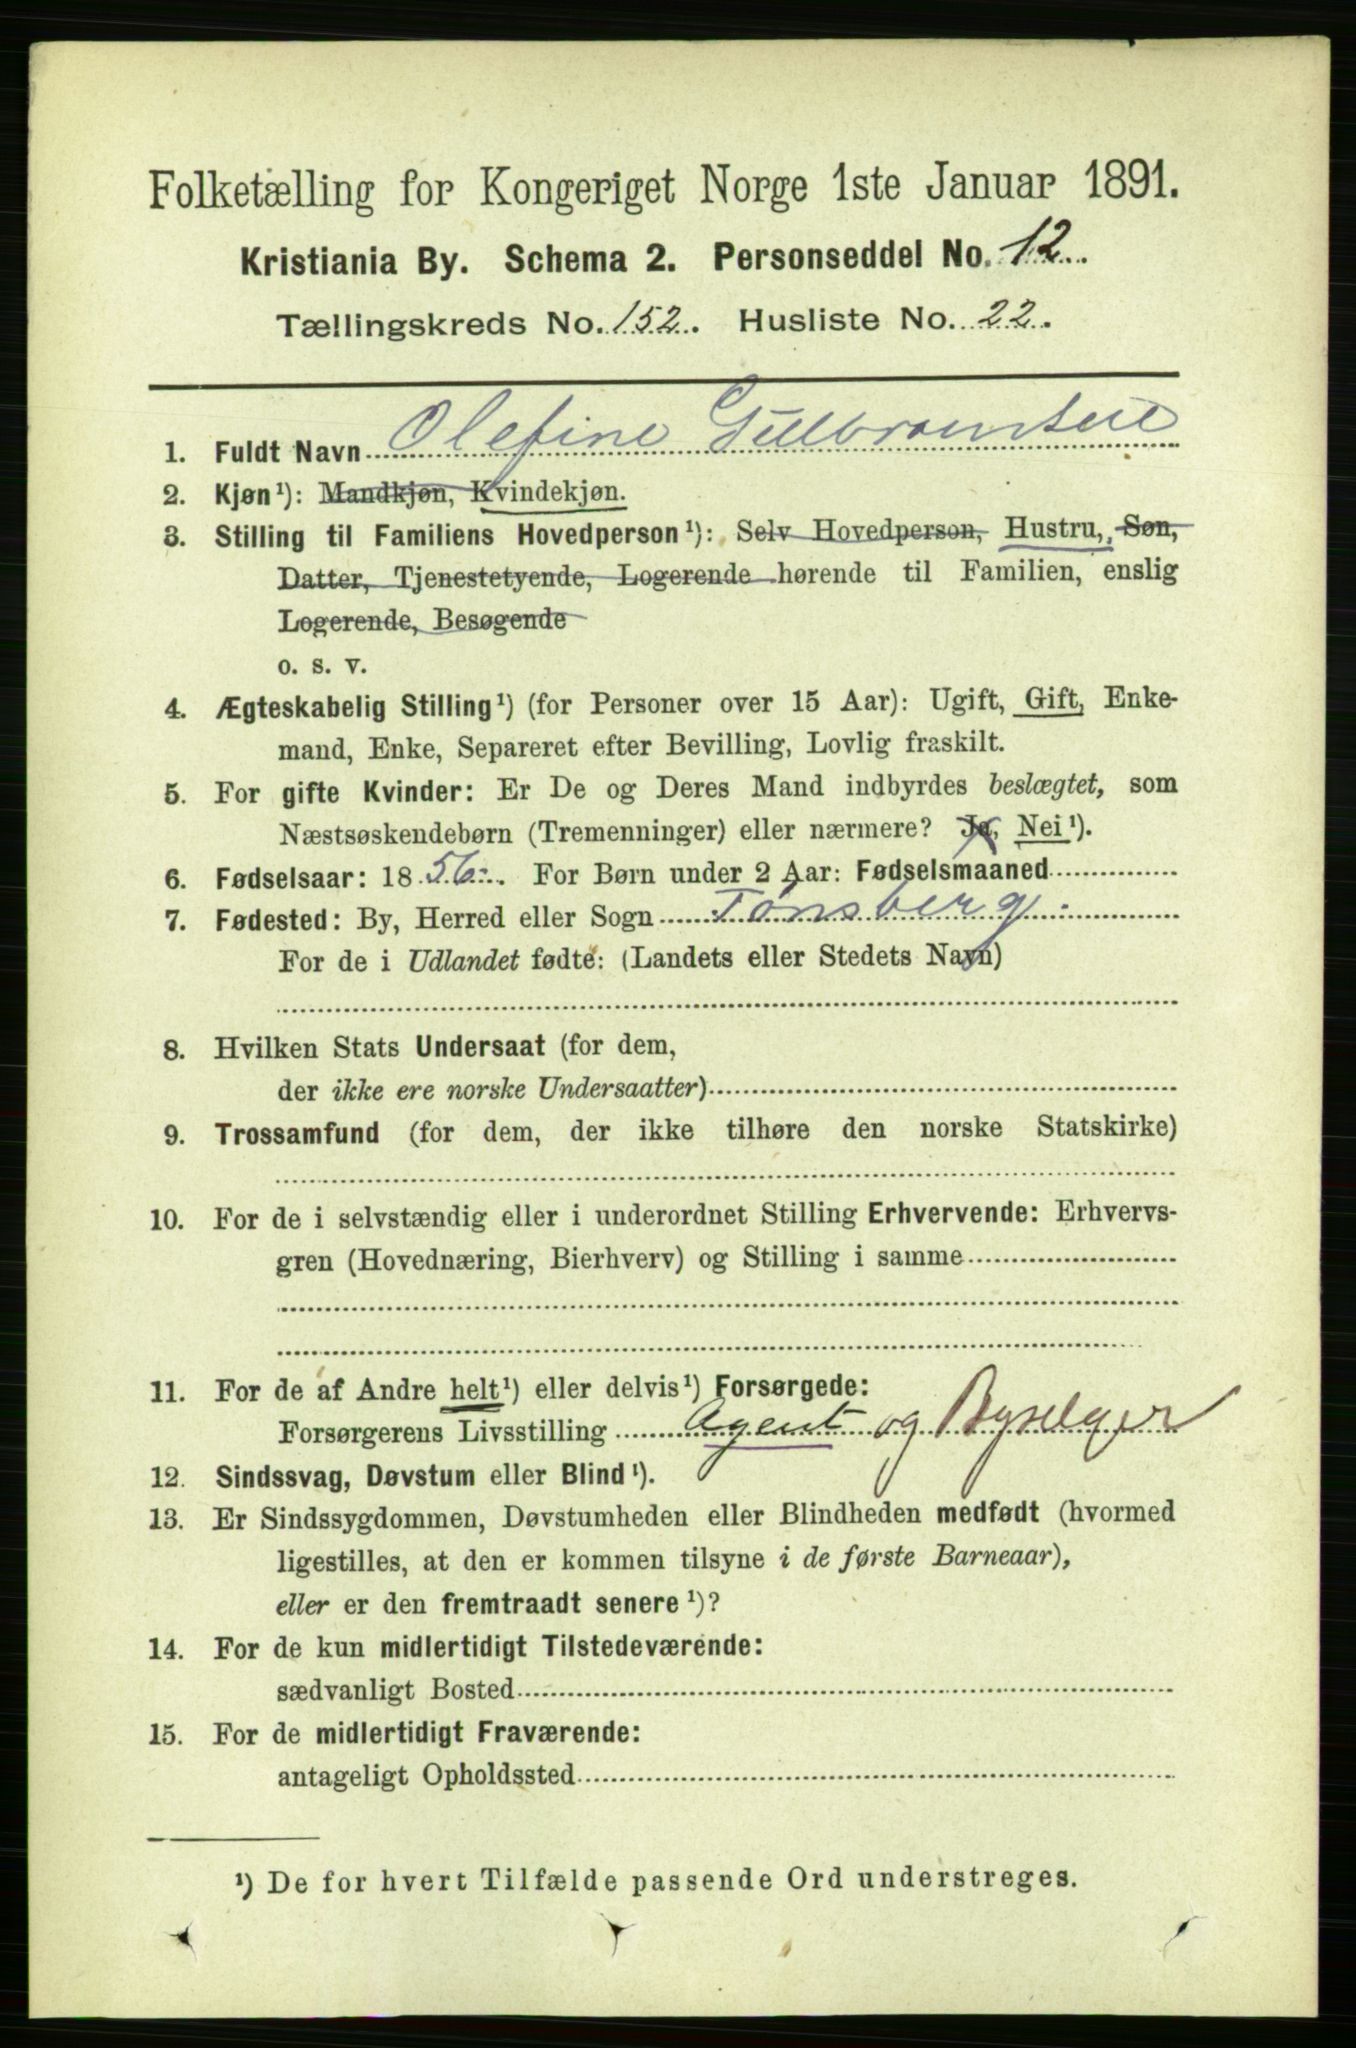 Folketælling for Kongeriget Norge 1ste Januar 1891.
Kristiania By. Schema 2. Personseddel No. 12.
Tællingskreds No. 152. Husliste No. 22.
1. Fuldt Navn Olefine Gulbransen
2. Kjøn¹): Mandkjøn, Kvindekjøn.
3. Stilling til Familiens Hovedperson¹): Selv Hovedperson, Hustru, Søn,
Datter, Tjenestetyende, Logerende hørende til Familien, enslig
Logerende, Besøgende
o. s. v.
4. Ægteskabelig Stilling¹) (for Personer over 15 Aar): Ugift, Gift, Enke-
mand, Enke, Separeret efter Bevilling, Lovlig fraskilt.
5. For gifte Kvinder: Er De og Deres Mand indbyrdes beslægtet, som
Næstsøskendebørn (Tremenninger) eller nærmere? Ja, Nei¹).
6. Fødselsaar: 1856. For Børn under 2 Aar: Fødselsmaaned
7. Fødested: By, Herred eller Sogn Tønsberg.
For de i Udlandet fødte: (Landets eller Stedets Navn)
8. Hvilken Stats Undersaat (for dem,
der ikke ere norske Undersaatter)
9. Trossamfund (for dem, der ikke tilhøre den norske Statskirke)
10. For de i selvstændig eller i underordnet Stilling Erhvervende: Erhvervs-
gren (Hovednæring, Bierhverv) og Stilling i samme
11. For de af Andre helt¹) eller delvis¹) Forsørgede:
Forsørgerens Livsstilling Agent og Byselger
12. Sindssvag, Døvstum eller Blind¹).
13. Er Sindssygdommen, Døvstumheden eller Blindheden medfødt (hvormed
ligestilles, at den er kommen tilsyne i de første Barneaar),
eller er den fremtraadt senere¹)?
14. For de kun midlertidigt Tilstedeværende:
sædvanligt Bosted
15. For de midlertidigt Fraværende:
antageligt Opholdssted
¹) De for hvert Tilfælde passende Ord understreges.